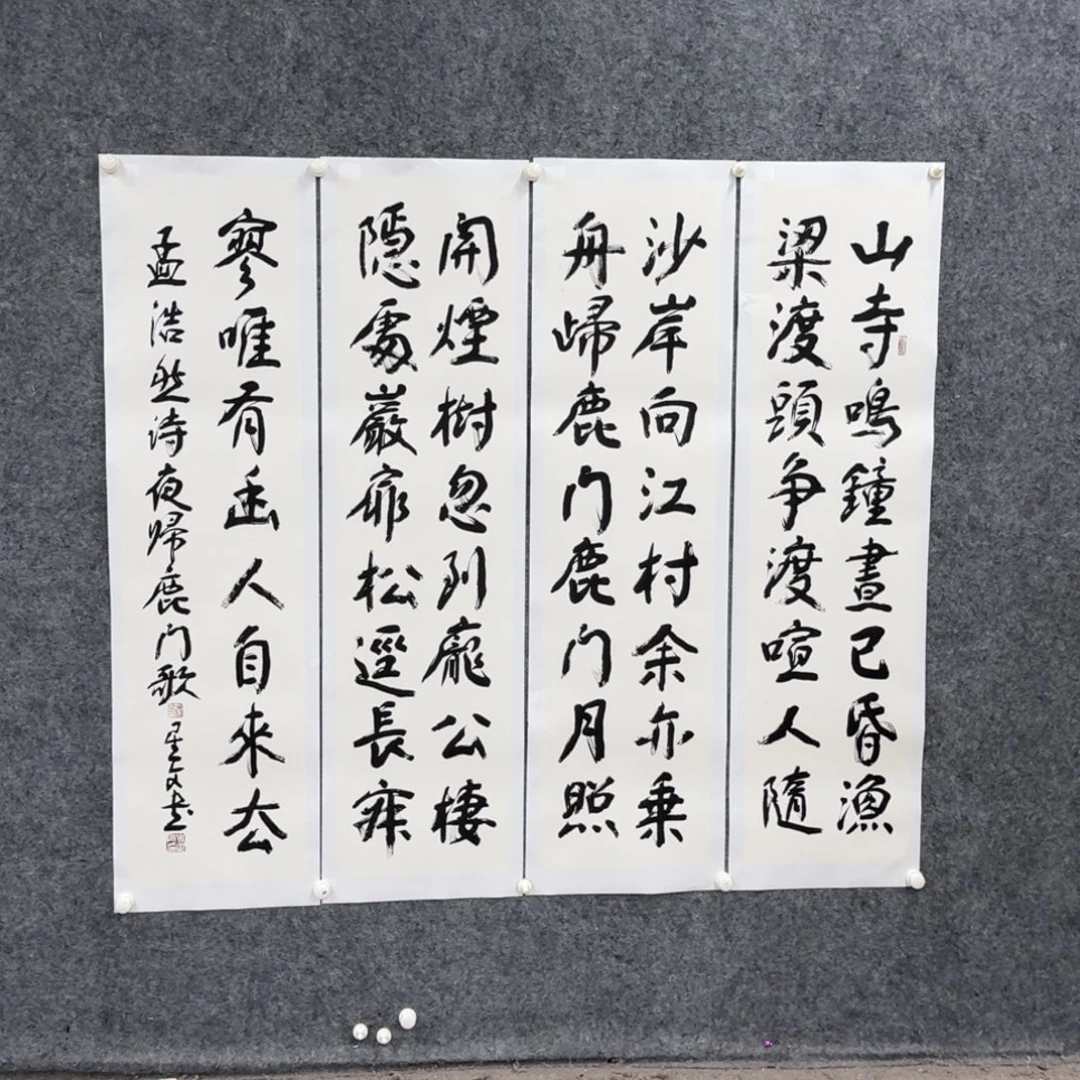 山寺鳴鐘晝已昏漁
梁渡頭争渡喧人隨
沙岸向江村余亦乗
舟歸鹿门鹿门月照
開煙樹忽到龐公棲
隱處巖扉松逕長寂
寥唯有幽人自來去
孟浩然诗夜歸鹿门歌